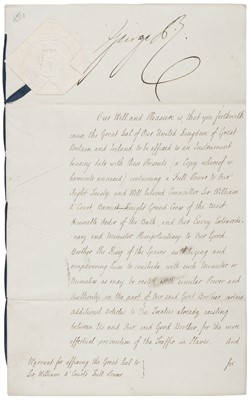 George R.
Our Will and Pleasure is that you forthwith
cause the Great Seal of Our United Kingdom of Great
Britain and Ireland to be affixed to an Instrument
bearing date with these Presents (a Copy whereof is
hereunto annexed) containing a Full Power to Our
Right Trusty and Well beloved Councillor Sir William
à Court, Knight Grand Cross of the Most
Honourable Order of the Bath and Our Envoy Extraordi-
nary and Minister Plenipotentiary to Our Good
Brother The King of the Spains authorizing and
empowering him to conclude with such Minister or
Ministers as may be vested with similar Power and
Authority on the part of Our said Good Brother
additional articles to the Treaties already existing
between Us and Our said Good Brother for the more
effectual prevention of the Traffic in Slaves. And
for
Warrant for affixing the Great Seal to
Sir William à Court's Full Power